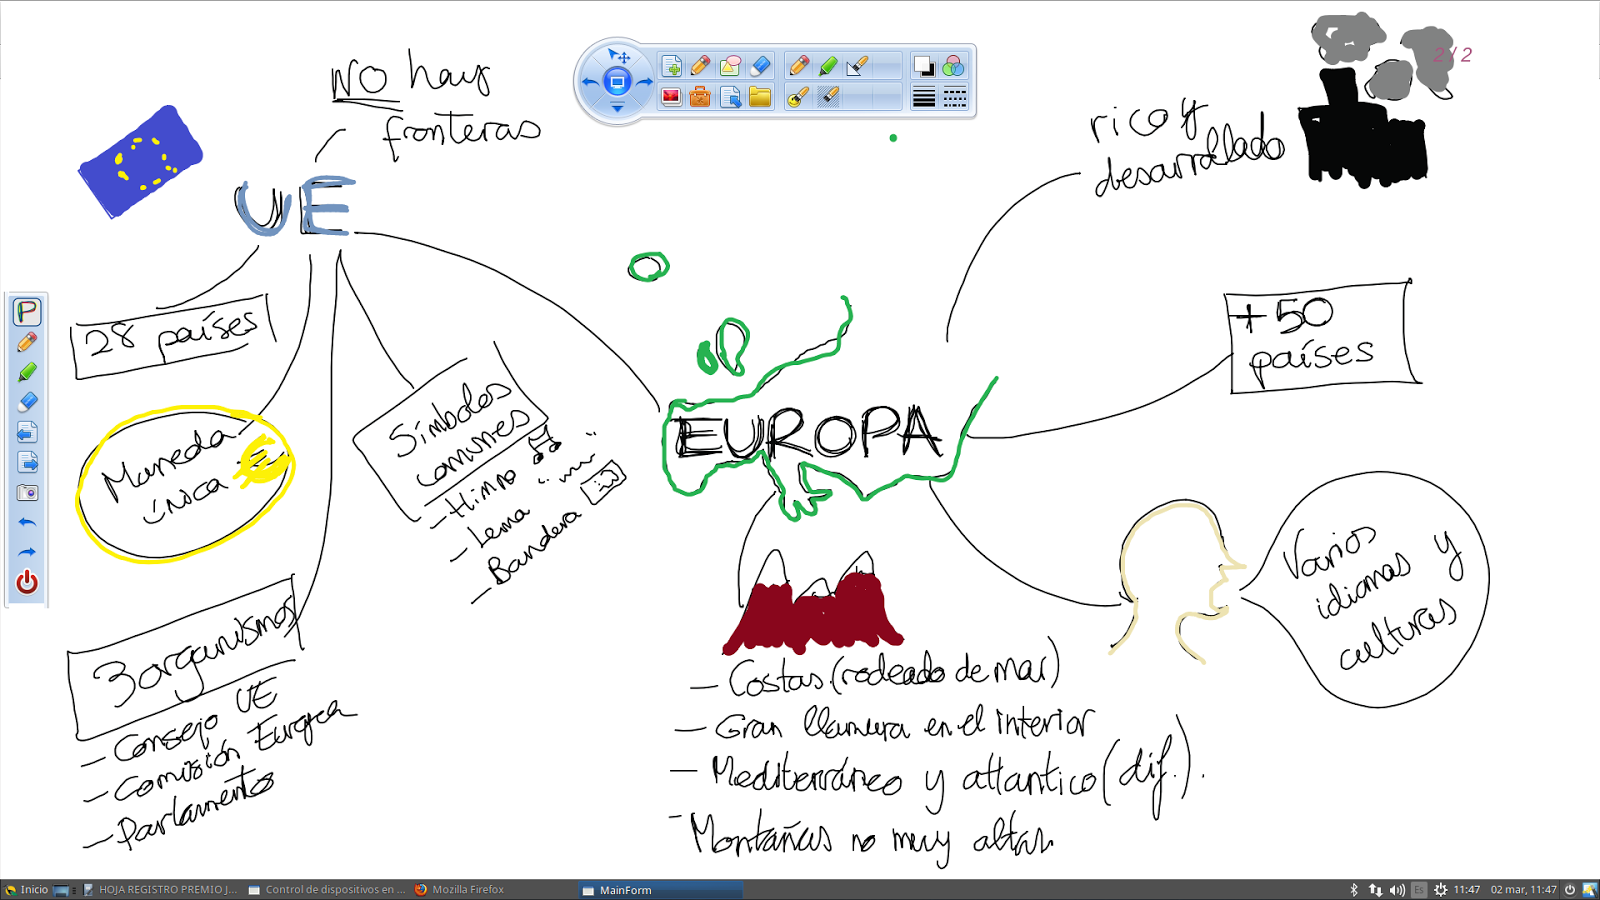 NO hay
fronteras
UE
28 países
Moneda
única €
Símbolos
comunes
- Himno
- Lema " "
- Bandera
3 organismos
- Consejo UE
- Comisión Europea
- Parlamento
EUROPA
2 / 2
rico y
desarrollado
+ 50
países
Varios
idiomas y
culturas
- Costas (rodeado de mar)
- Gran llanura en el interior
- Mediterráneo y atlantico (dif.).
- Montañas no muy altas
P
Inicio
HOJA REGISTRO PREMIO J...
Control de dispositivos en ...
Mozilla Firefox
MainForm
Es
11:47
02 mar, 11:47